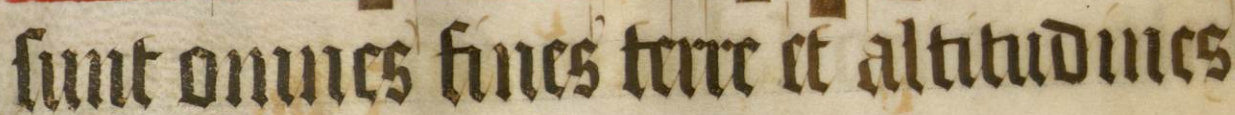 sunt omnes fines terre et altitudines